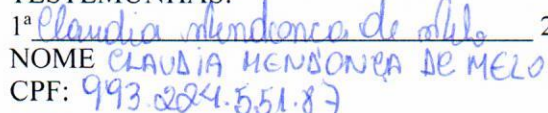 TESTEMUNHAS:
1ª Claudia Mendonca de Melo 2
NOME CLAUDIA MENDONÇA DE MELO
CPF: 993.224.551.87